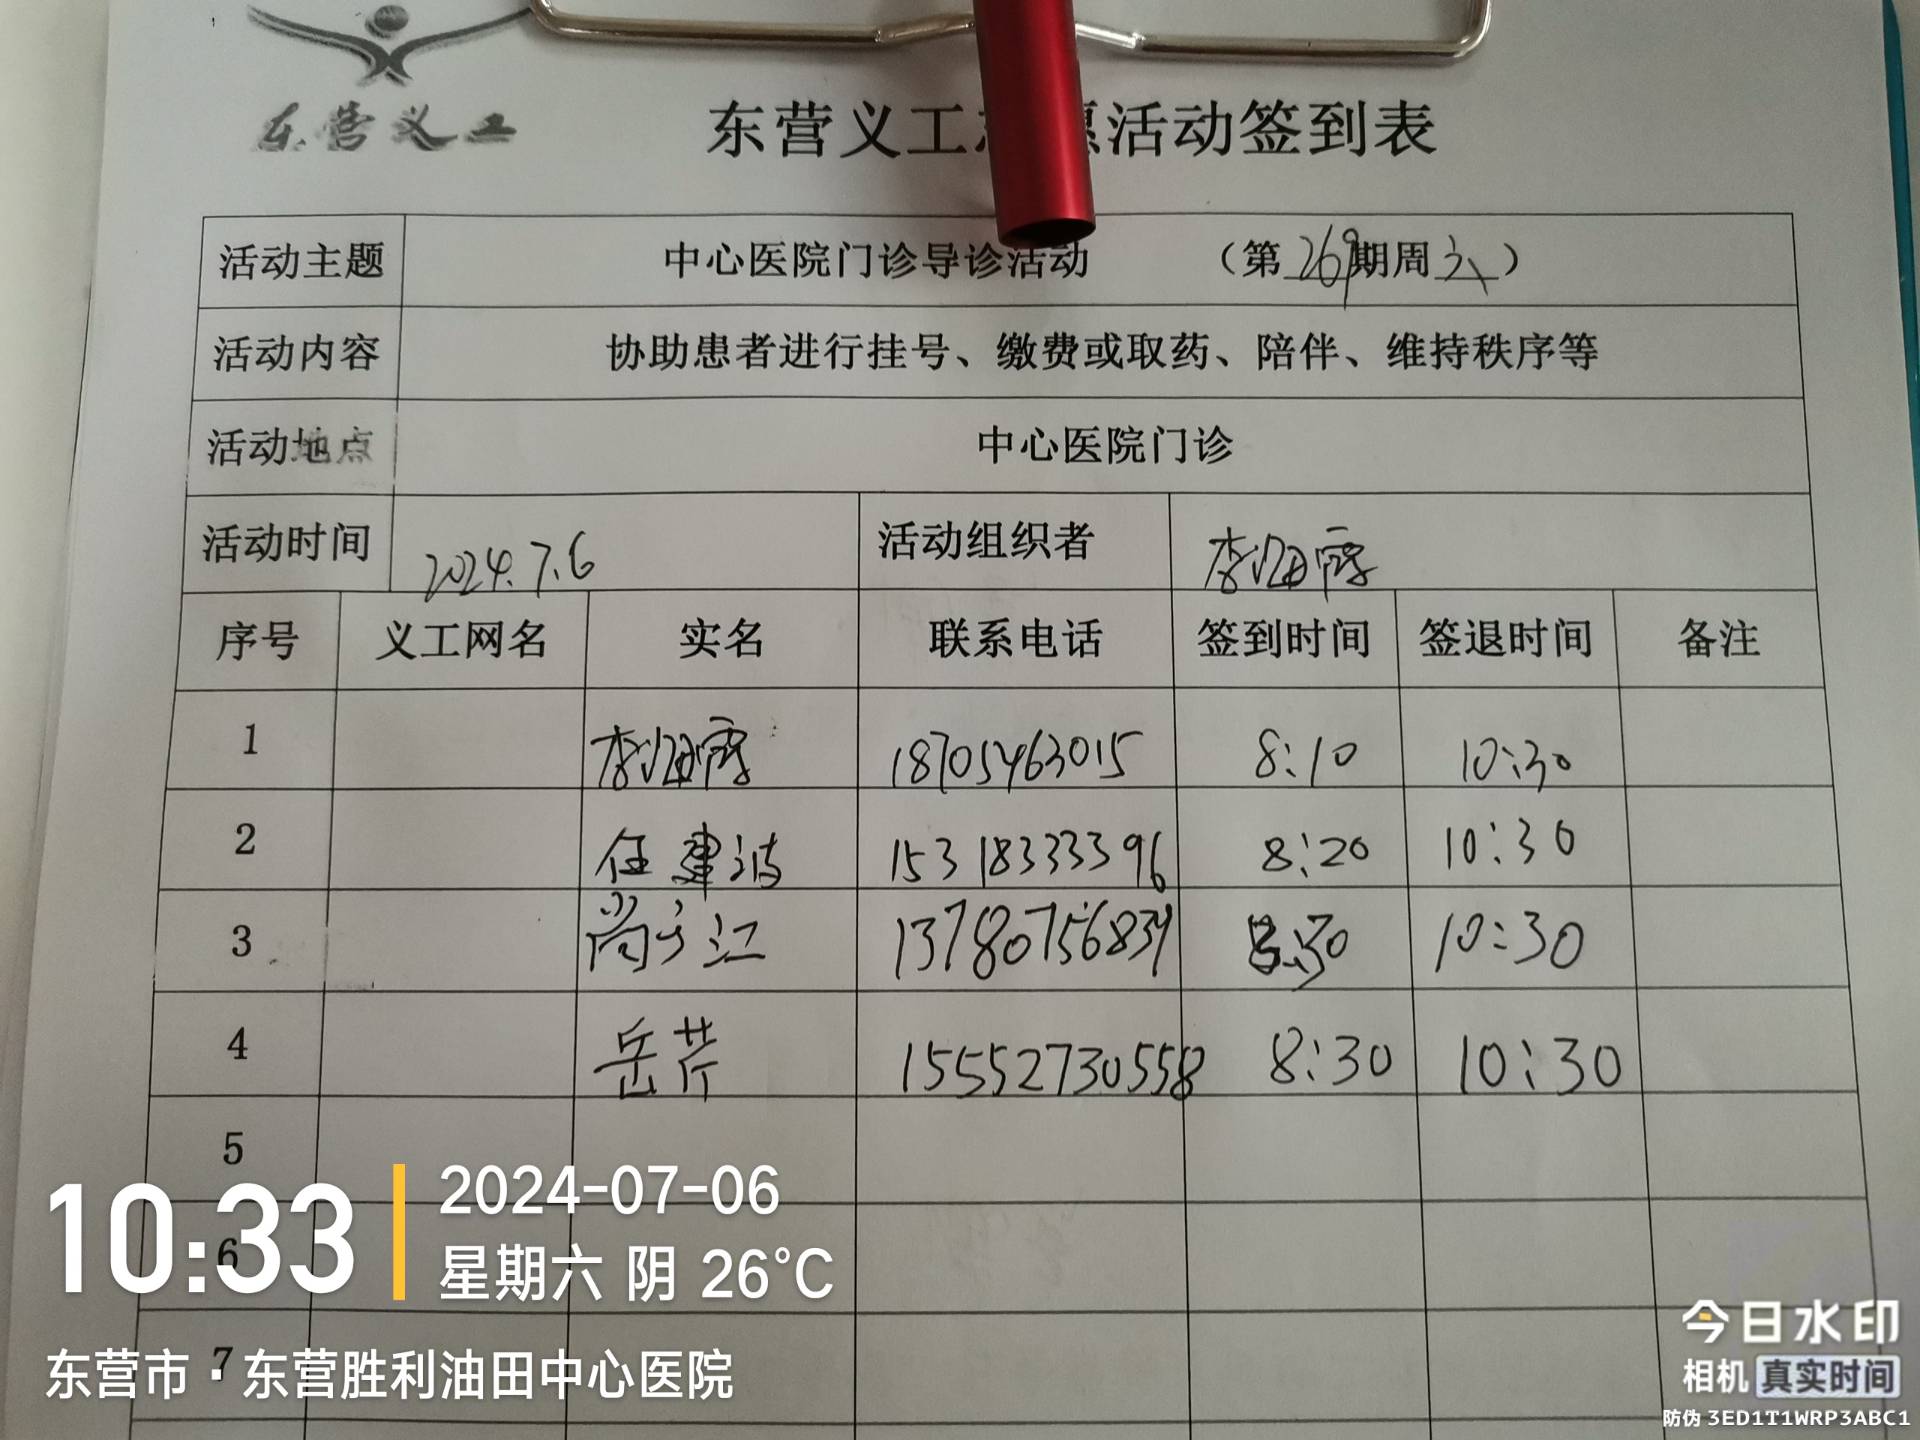 东营义工
东营义工志愿活动签到表
活动主题 中心医院门诊导诊活动 (第269期周六)
活动内容 协助患者进行挂号、缴费或取药、陪伴、维持秩序等
活动地点 中心医院门诊
活动时间 2024.7.6 活动组织者 李海霞
序号 义工网名 实名 联系电话 签到时间 签退时间 备注
1 李海霞 18705463015 8:10 10:30
2 任建波 15318333396 8:20 10:30
3 尚方江 13780756839 8:30 10:30
4 岳芹 15552730558 8:30 10:30
5
6
7
10:33
2024-07-06
星期六 阴 26°C
东营市·东营胜利油田中心医院
今日水印
相机 真实时间
防伪 3ED1T1WRP3ABC1